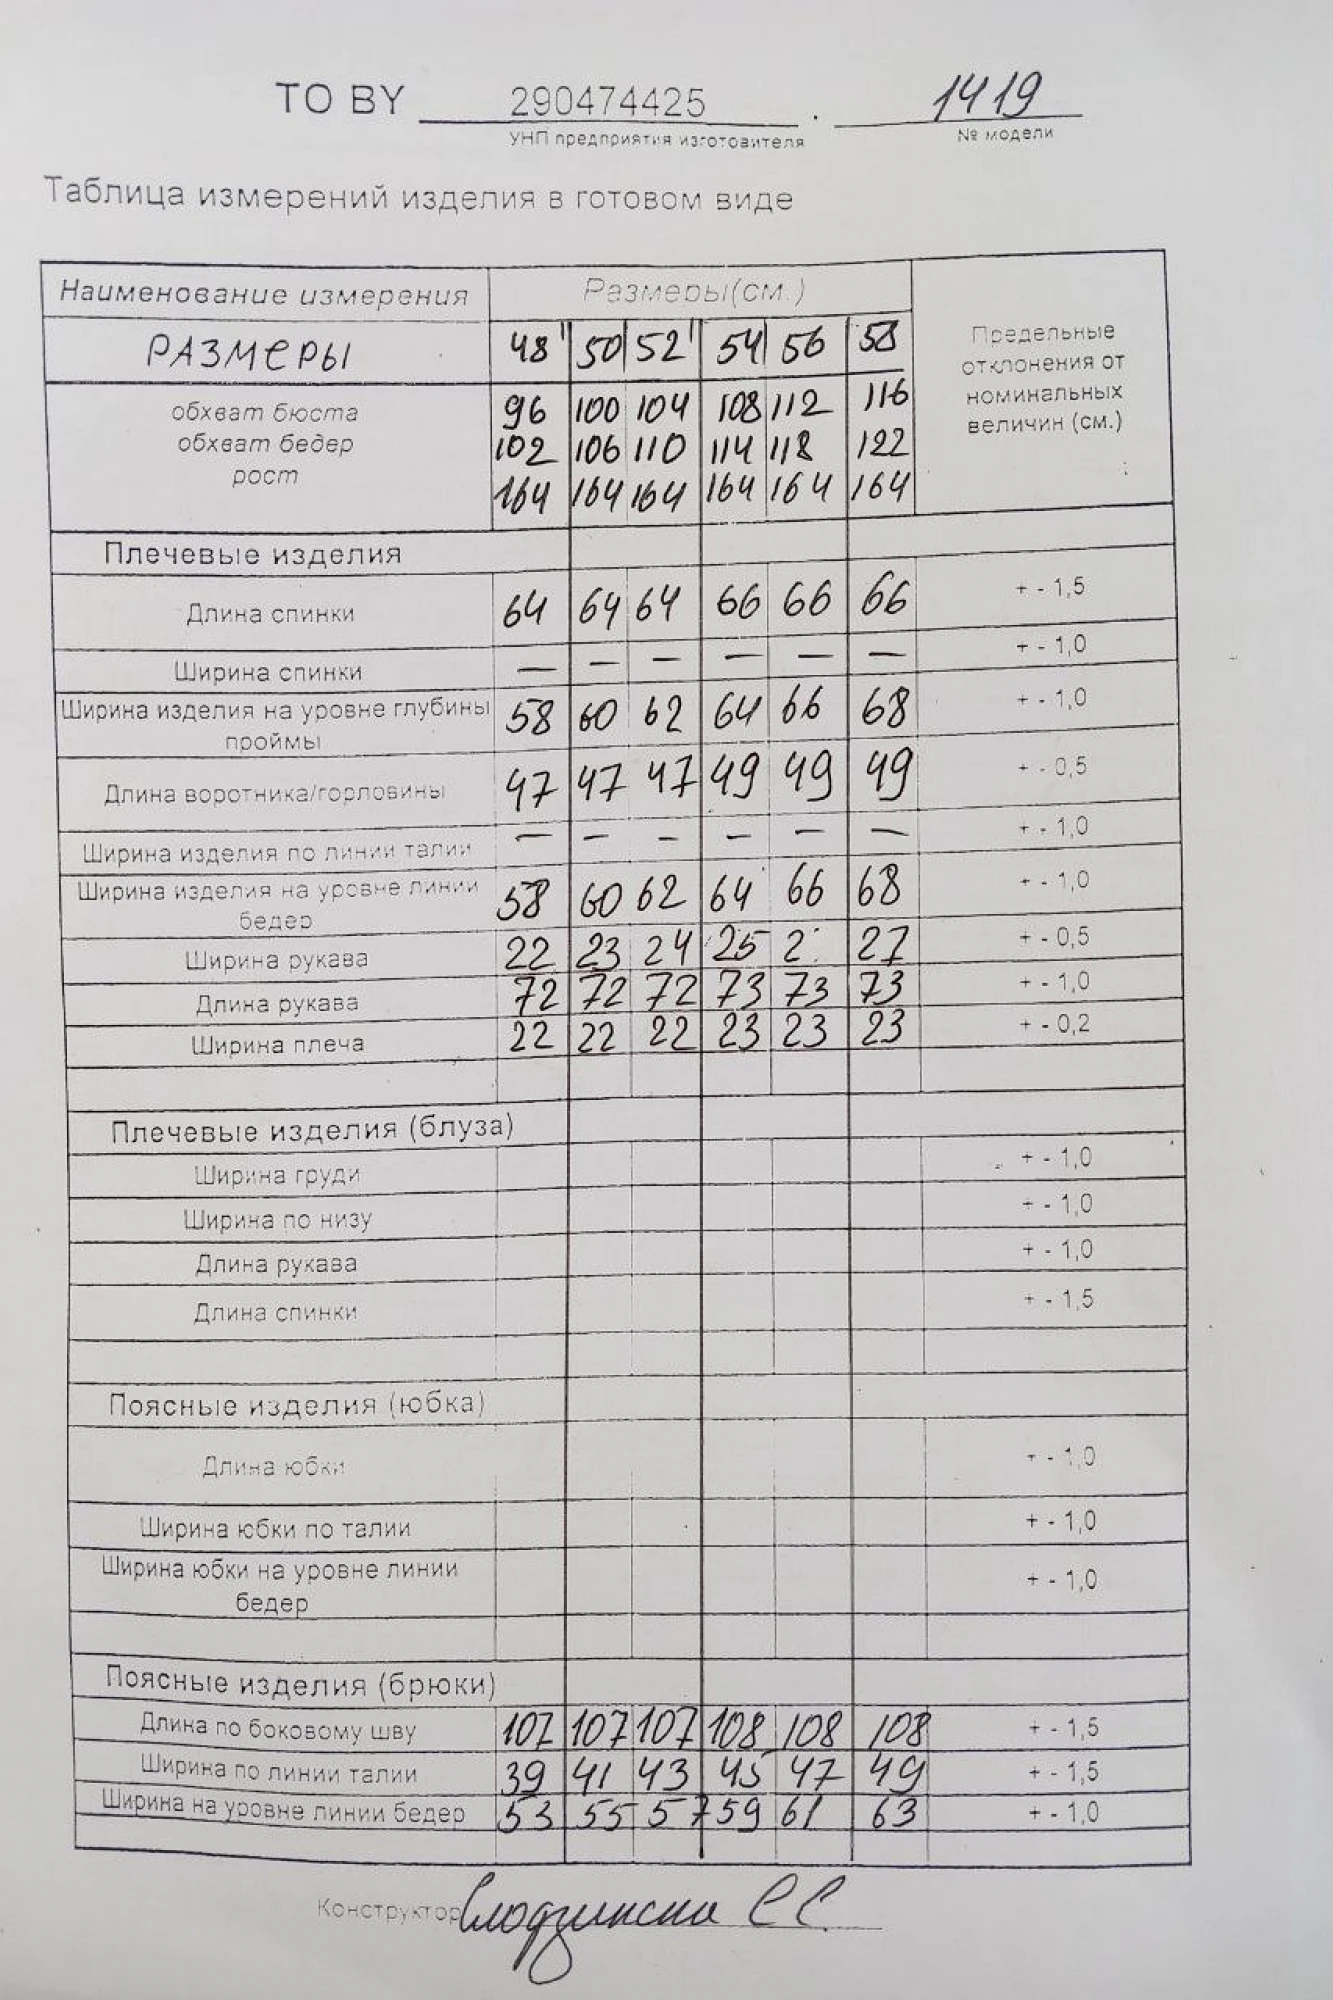 ТО BY 290474425 . 1419
УНП предприятия изготовителя № модели
Таблица измерений изделия в готовом виде
Наименование измерения Размеры(см.) Предельные отклонения от номинальных величин (см.)
РАЗМЕРЫ 48 50 52 54 56 58
обхват бюста 96 100 104 108 112 116
обхват бедер 102 106 110 114 118 122
рост 164 164 164 164 164 164
Плечевые изделия
Длина спинки 64 64 64 66 66 66 + - 1,5
Ширина спинки — — — — — — + - 1,0
Ширина изделия на уровне глубины проймы 58 60 62 64 66 68 + - 1,0
Длина воротника/горловины 47 47 47 49 49 49 + - 0,5
Ширина изделия по линии талии — — — — — — + - 1,0
Ширина изделия на уровне линии бедер 58 60 62 64 66 68 + - 1,0
Ширина рукава 22 23 24 25 2 27 + - 0,5
Длина рукава 72 72 72 73 73 73 + - 1,0
Ширина плеча 22 22 22 23 23 23 + - 0,2
Плечевые изделия (блуза)
Ширина груди + - 1,0
Ширина по низу + - 1,0
Длина рукава + - 1,0
Длина спинки + - 1,5
Поясные изделия (юбка)
Длина юбки + - 1,0
Ширина юбки по талии + - 1,0
Ширина юбки на уровне линии бедер + - 1,0
Поясные изделия (брюки)
Длина по боковому шву 107 107 107 108 108 108 + - 1,5
Ширина по линии талии 39 41 43 45 47 49 + - 1,5
Ширина на уровне линии бедер 53 55 57 59 61 63 + - 1,0
Конструктор С.С.